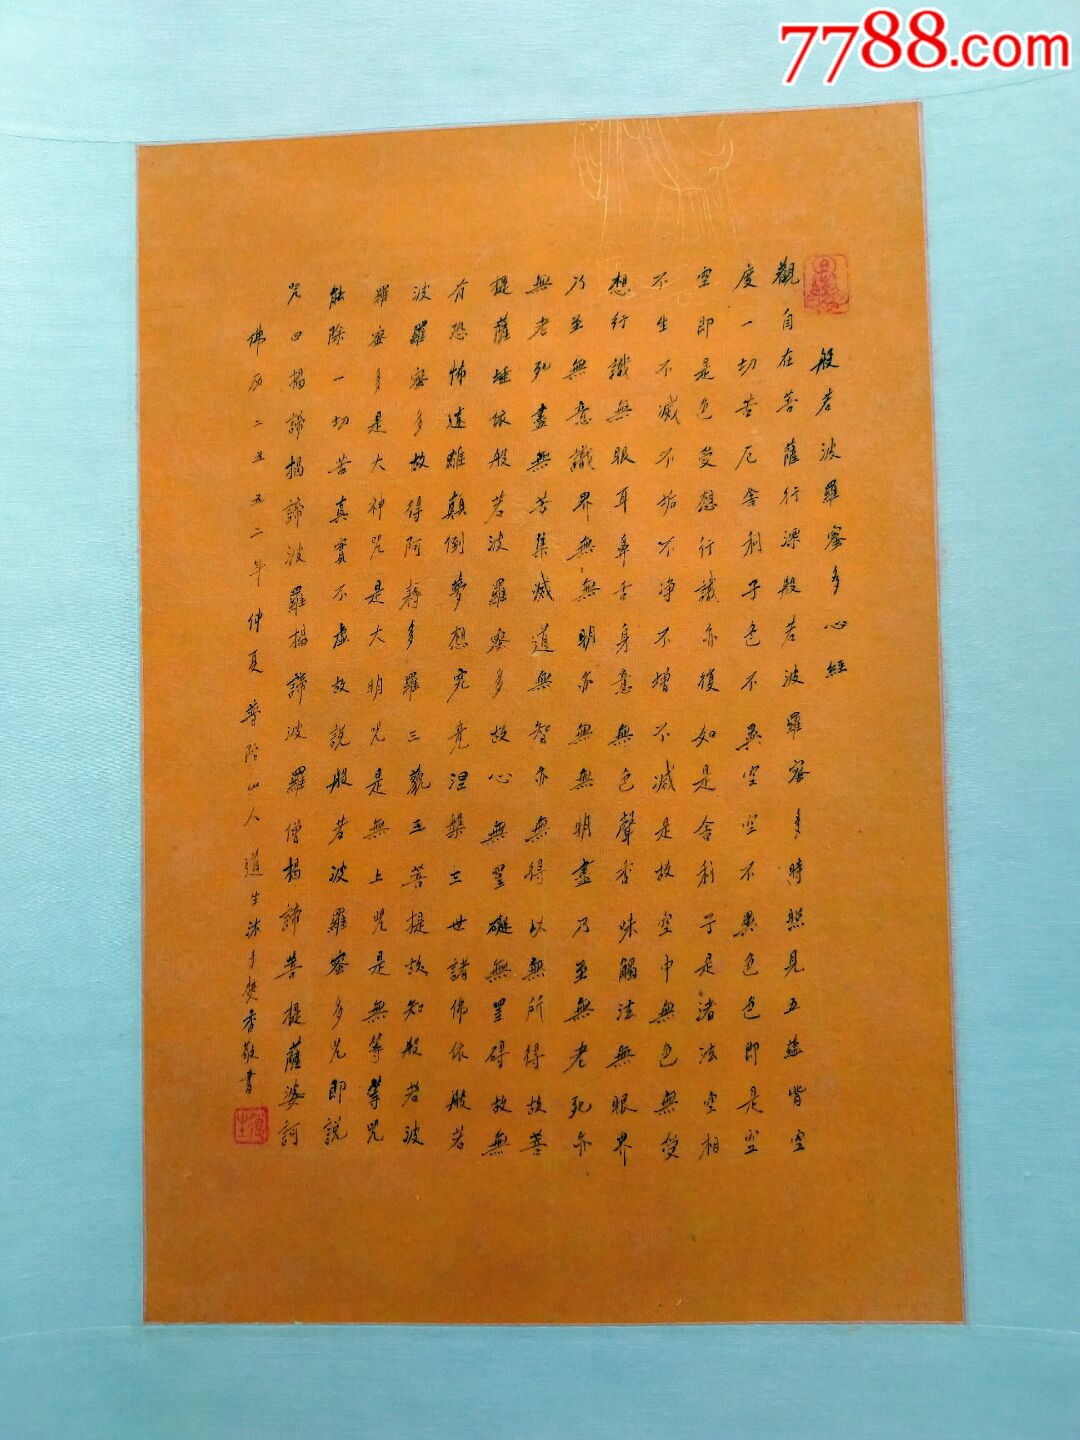 7788.com
般若波羅蜜多心經
觀自在菩薩行深般若波羅蜜多時照見五蘊皆空
度一切苦厄舍利子色不異空空不異色色即是空
空即是色受想行識亦復如是舍利子是諸法空相
不生不滅不垢不净不增不減是故空中無色無受
想行識無眼耳鼻舌身意無色聲香味觸法無眼界
乃至無意識界無無明亦無無明盡乃至無老死亦
無老死盡無苦集滅道無智亦無得以無所得故菩
提薩埵依般若波羅蜜多故心無罣礙無罣碍故無
有恐怖遠離顛倒夢想究竟涅槃三世諸佛依般若
波羅蜜多故得阿耨多羅三藐三菩提故知般若波
羅蜜多是大神咒是大明咒是無上咒是無等等咒
能除一切苦真實不虛故説般若波羅蜜多咒即説
咒曰揭諦揭諦波羅揭諦波羅僧揭諦菩提薩婆訶
佛历二五五二年仲夏普陀山人道生沐手焚香敬書